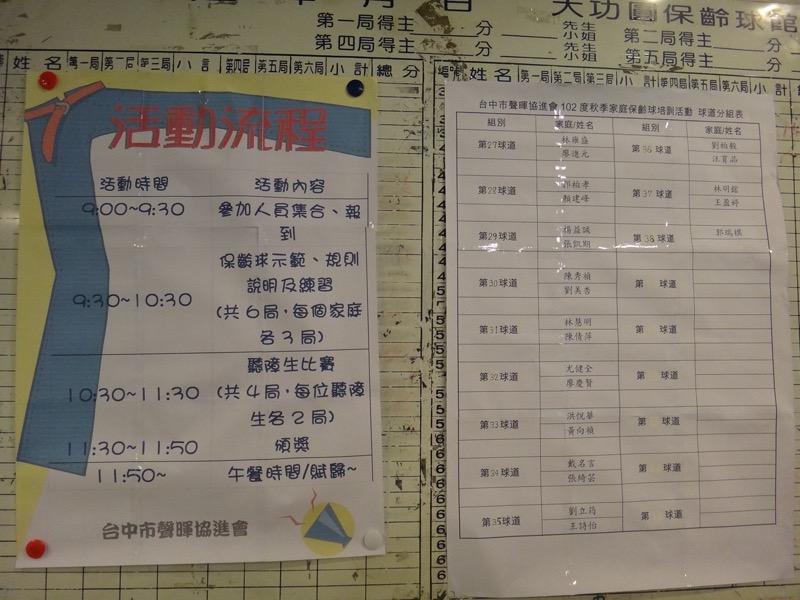 天功園保齡球館
第一局得主 分 先生 小姐 第二局得主 分
第四局得主 分 先生 小姐 第五局得主 分
姓名 第一局 第二局 第三局 小計 第四局 第五局 第六局 小計 總分
編號 姓名 第一局 第二局 第三局 小計 第四局 第五局 第六局 小計
活動流程
活動時間 活動內容
9:00~9:30 參加人員集合、報
到
9:30~10:30 保齡球示範、規則
說明及練習
(共6局,每個家庭
各3局)
10:30~11:30 聽障生比賽
(共4局,每位聽障
生各2局)
11:30~11:50 頒獎
11:50~ 午餐時間/賦歸~
台中市聲暉協進會
台中市聲暉協進會102度秋季家庭保齡球培訓活動 球道分組表
組別 家庭/姓名 組別 家庭/姓名
第27球道 林雍盛 第36球道 劉柏毅
廖進元 汪寬品
第28球道 柏孝 第37球道 林明
賴建峰 王盈婷
第29球道 楊益誠 第38球道 郭瑞棋
張凱期
第30球道 陳秀禎 第 球道
劉美杏
第31球道 林慧明 第 球道
陳倩萍
第32球道 尤健全 第 球道
廖慶賢
第33球道 洪悅華 第 球道
黃向禎
第34球道 戴名言 第 球道
張綺芸
第35球道 劉立筠 第 球道
王詩怡